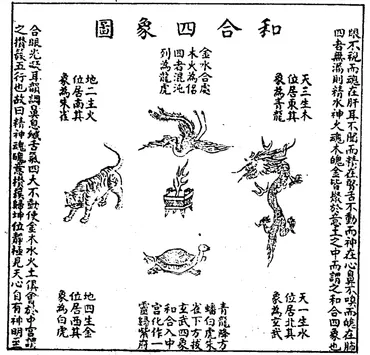 和合四象圖
眼不視而魂在肝耳不聞而精在腎舌不動而神在心鼻不嗅而魄在肺
四者無漏則精水神火魂木魄金皆聚於意土之中而謂之和合四象也
天三生木
位居東其
象為青龍
金水合處
木火為侶
四者混沌
列為龍虎
地二生火
位居南其
象為朱雀
天一生水
位居北其
象為玄武
青龍隆方
蟠白虎朱
雀下方挨
玄武四象
和合入中
宮化作一
靈歸紫府
地四生金
位居西其
象為白虎
合眼光凝耳韻調鼻息緘舌氣四大不動使金木水火土俱會於中宮謂
之攢簇五行也故曰精神魂魄意攢簇歸坤位靜極見天心自有神明至